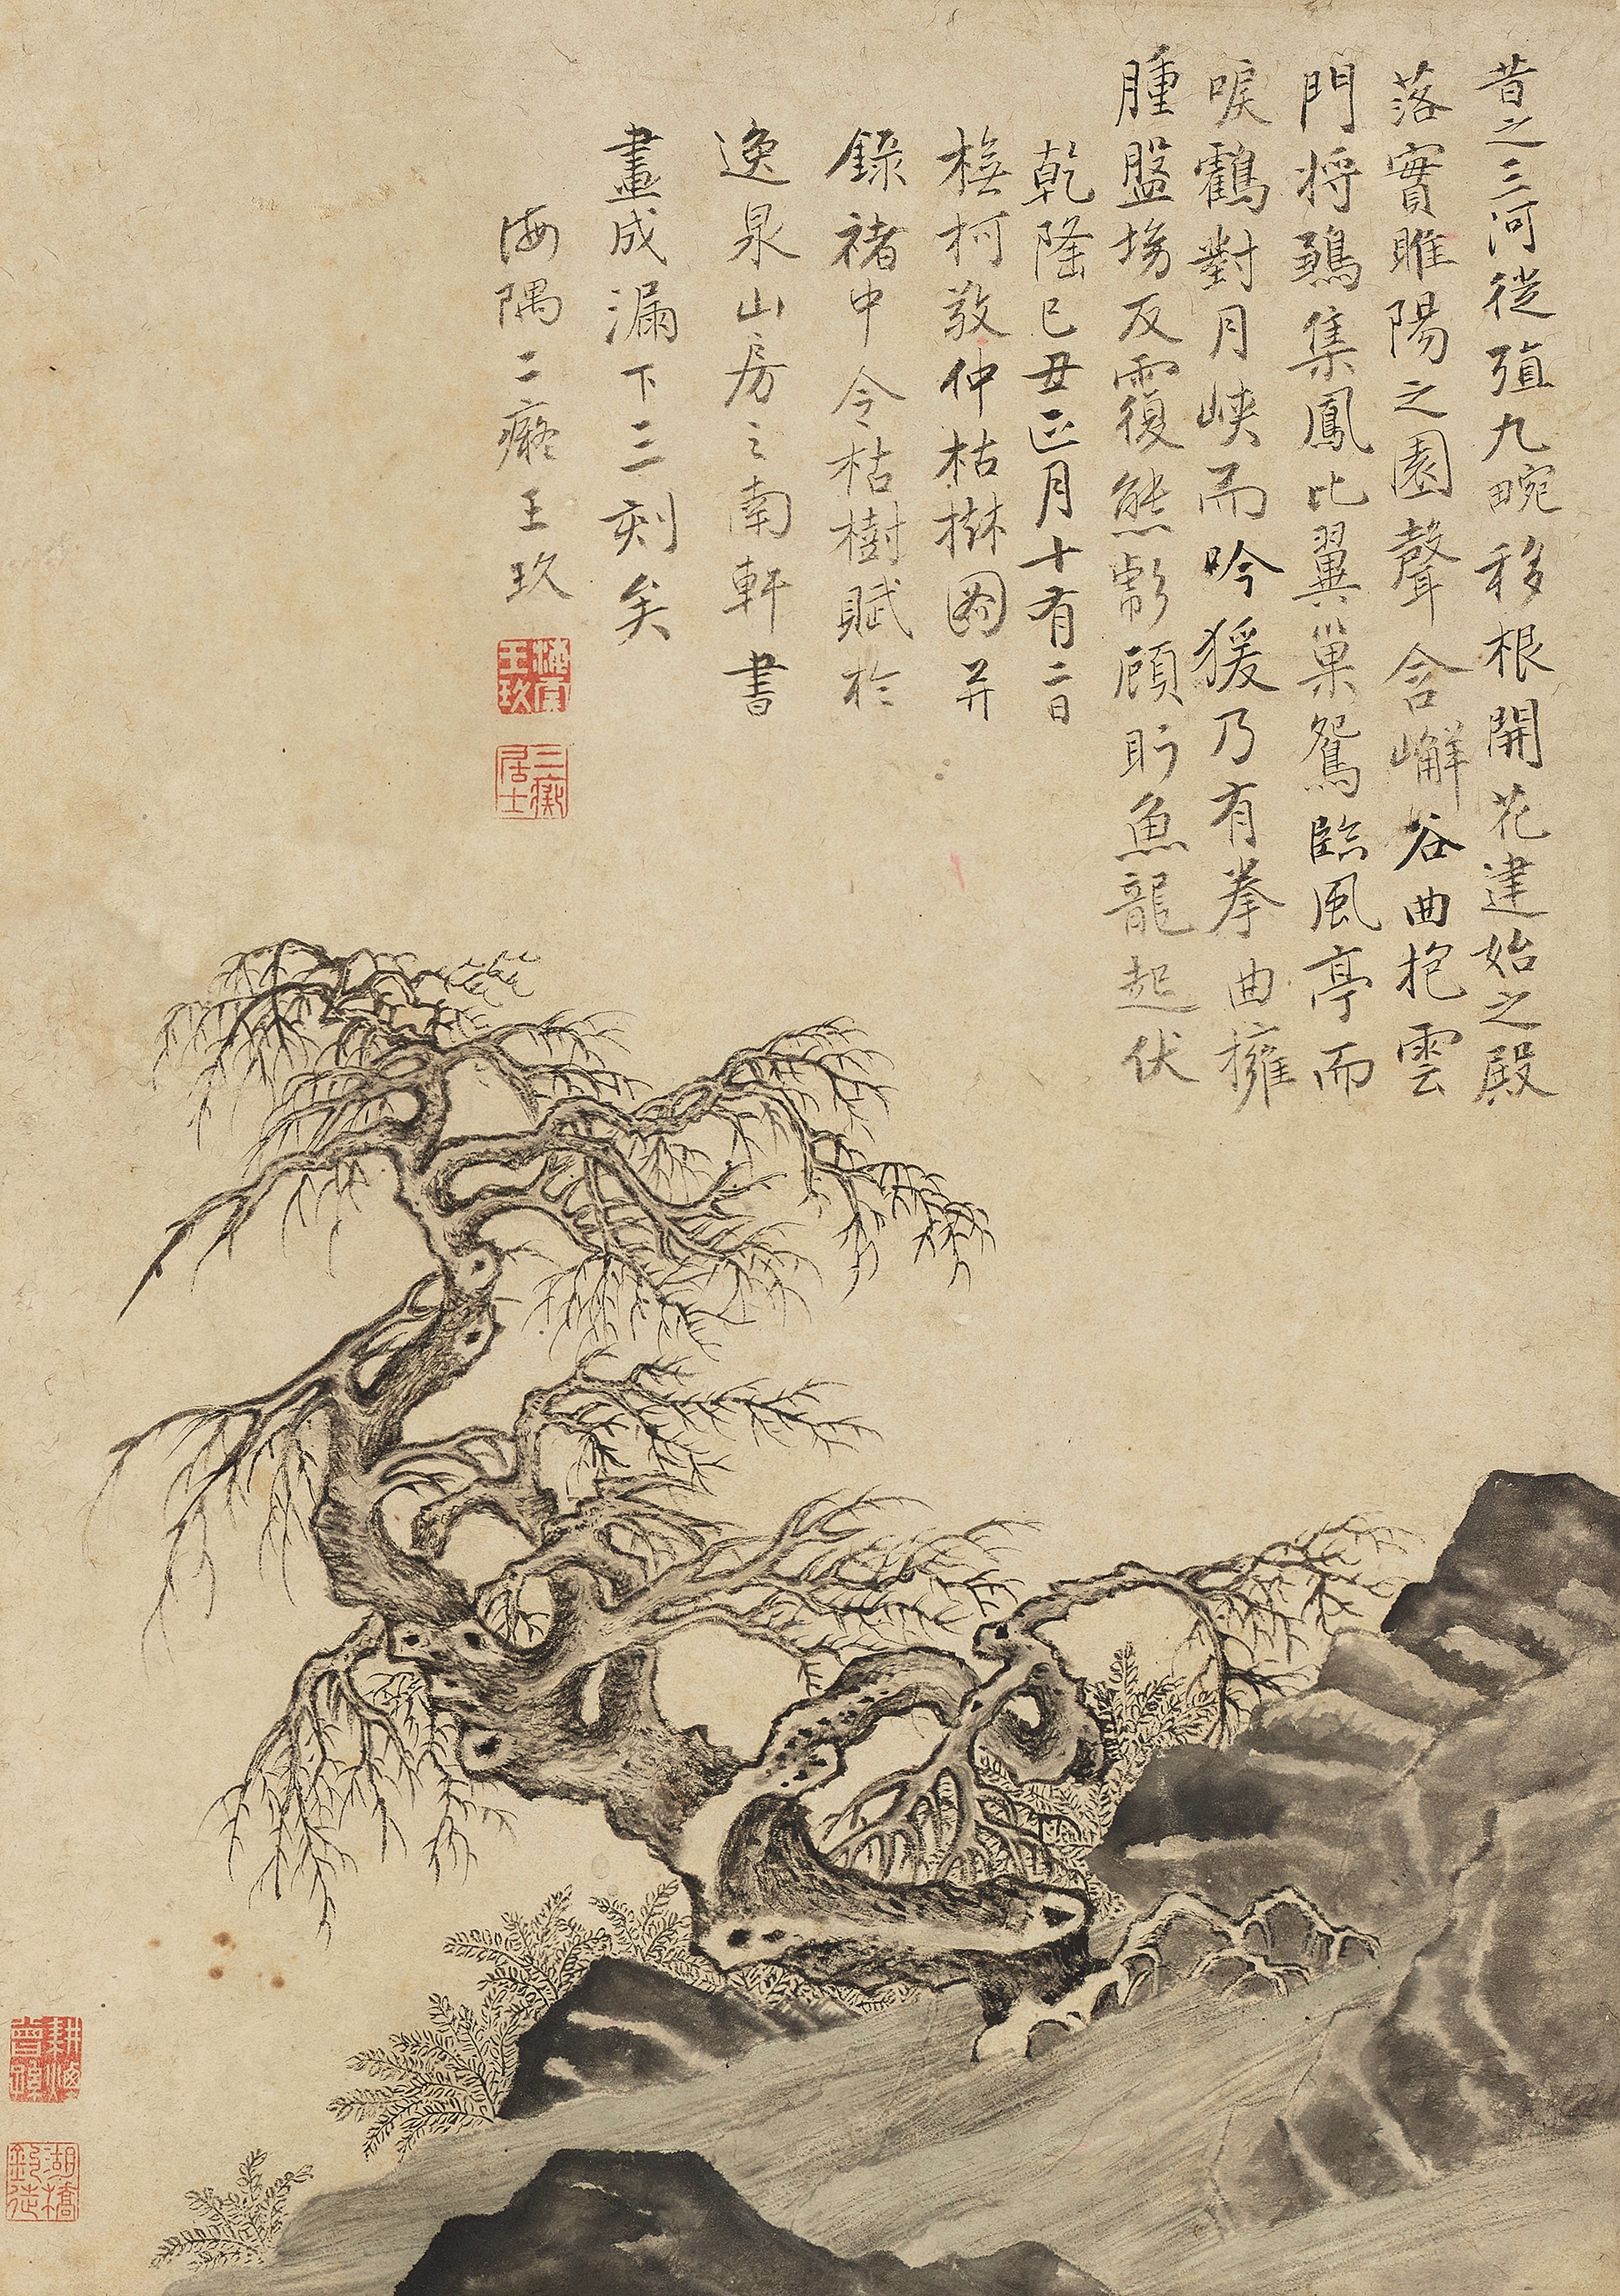 昔之三河徙殖九畹移根開花建始之殿
落實睢陽之園聲含嶰谷曲抱雲
門將鶵集鳳比翼巢鴛臨風亭而
唳鶴對月峽而吟猨乃有拳曲擁
腫盤坳反覆熊彪顧盼魚龍起伏
乾隆己丑正月十有二日
橅柯敬仲枯樹圖并
錄褚中令枯樹賦於
逸泉山房之南軒書
畫成漏下三刻矣
海隅二癡王玖
王玖
三癡居士
湖橋釣徒